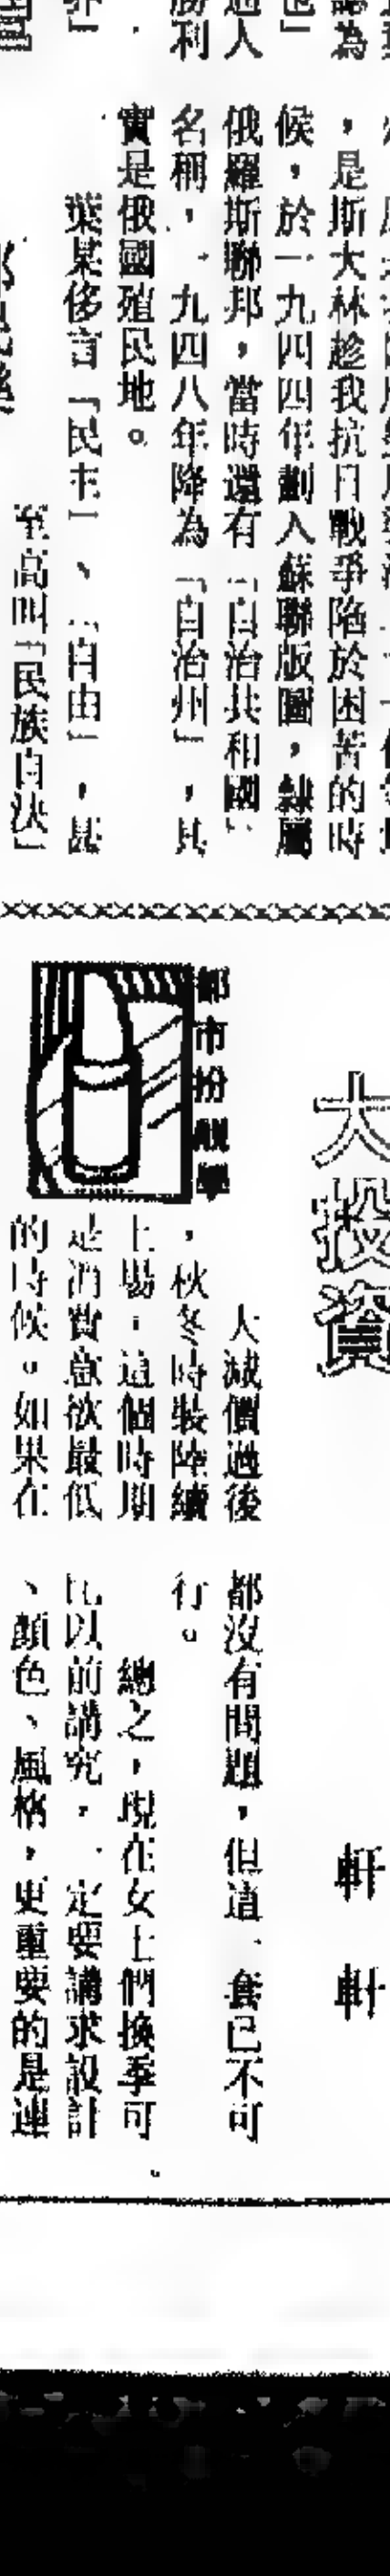 認為
過人
勝利
，是斯大林趁我抗日戰爭陷於困苦的時
候，於一九四四年劃入蘇聯版圖，隸屬
俄羅斯聯邦，當時還有「自治共和國」
名稱，一九四八年降為「自治州」，其
實是俄國殖民地。
葉某侈言「民主」、「自由」，甚
至高叫「民族自決」
大投資
軒軒
都市扮靚學
大減價過後
，秋冬時裝陸續
上場。這個時期
是消費意欲最低
的時候。如果在
都沒有問題，但這一套已不可
行。
總之，現在女士們換季可
比以前講究，一定要講求設計
、顏色、風格，更重要的是連